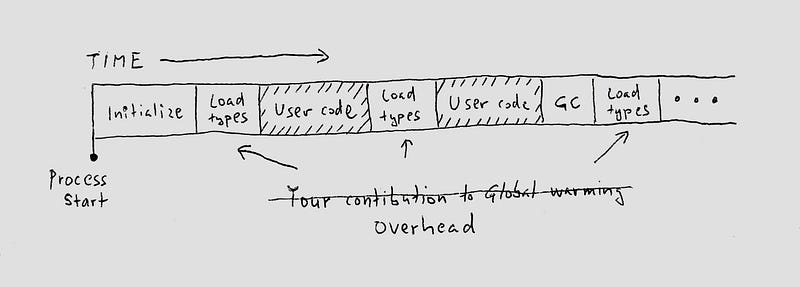 TIME
Initialize
Load
types
User code
Load
types
User code
GC
Load
types
...
Process
Start
Your contibution to Global warming
Overhead